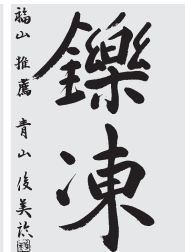 鑠凍
福山 推薦 青山 俊美